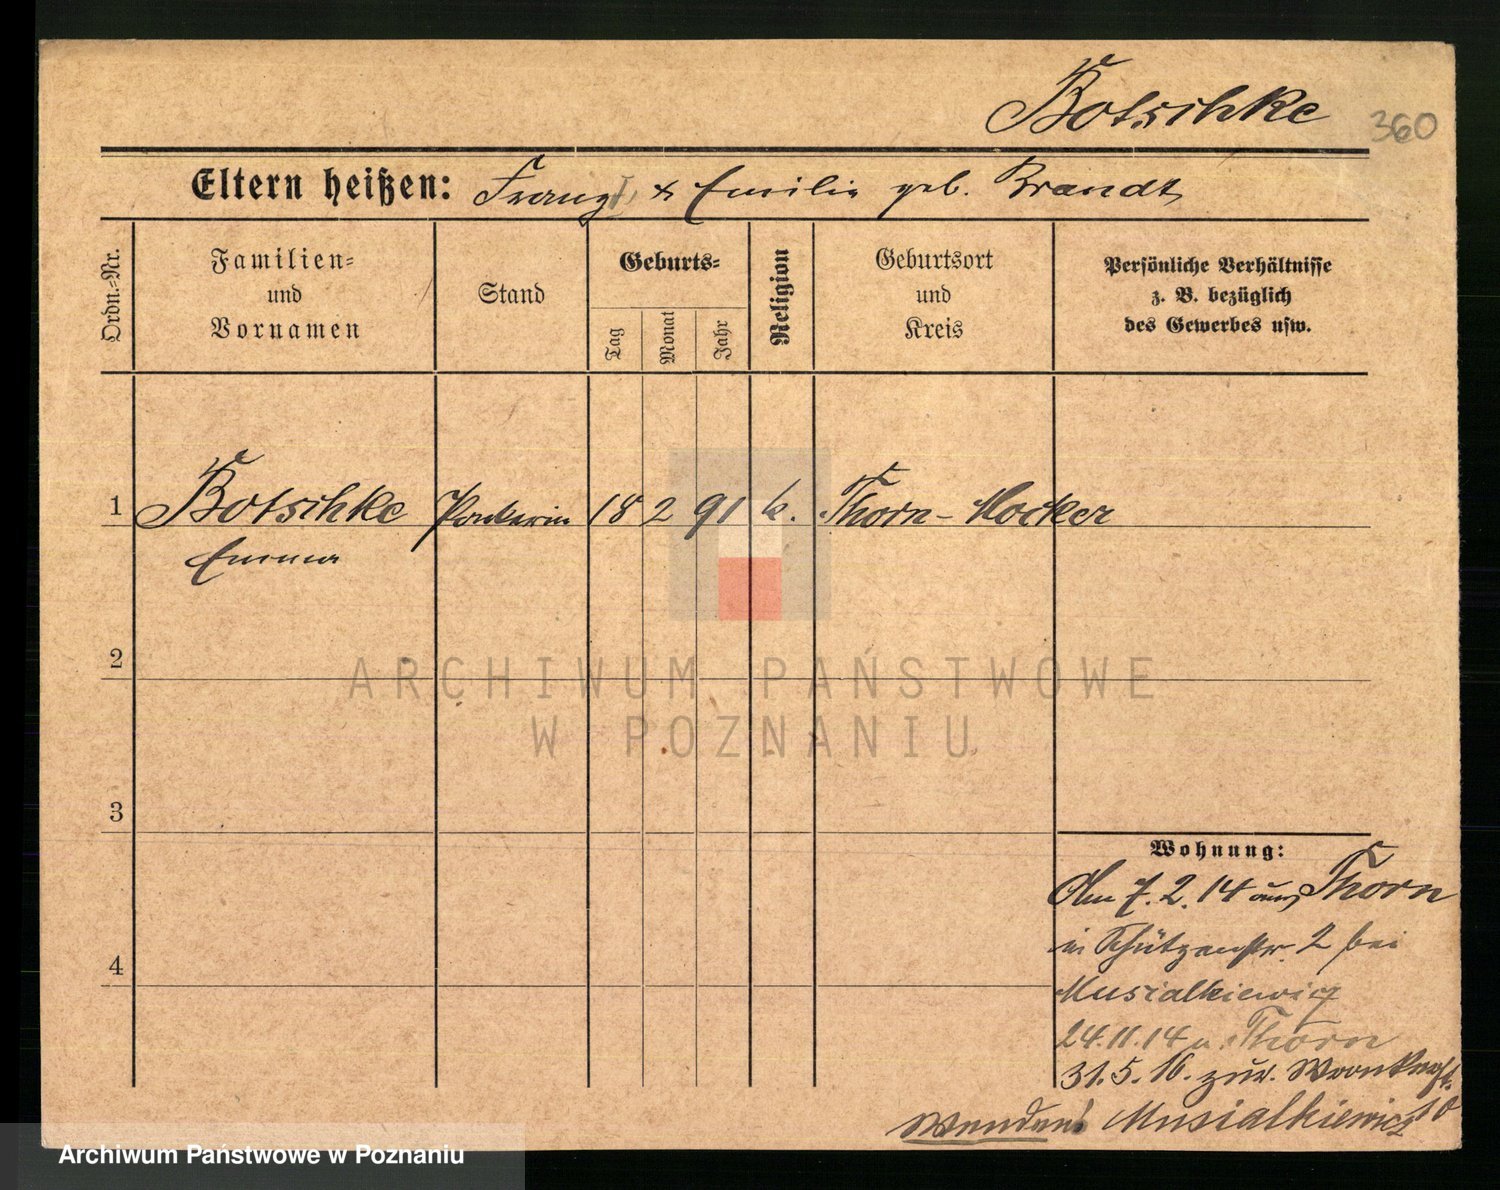 Botschke
360
Eltern heißen: Franz † & Emilie geb. Brandt
Ordn.=Nr.
Familien=
und
Vornamen
Stand
Geburts=
Tag
Monat
Jahr
Religion
Geburtsort
und
Kreis
Persönliche Verhältnisse
z. B. bezüglich
des Gewerbes usw.
1 Botschke 18 2 91 k. Thorn - Mocker
Emma
2
3
4
Wohnung:
Am 7. 2. 14 aus Thorn
in Schützenstr. 2 bei
Musialkiewicz
24.11.14 n. Thorn
31.5.16. zur.
Musialkiewicz 10
Wenden!
ARCHIWUM PAŃSTWOWE
W POZNANIU
Archiwum Państwowe w Poznaniu